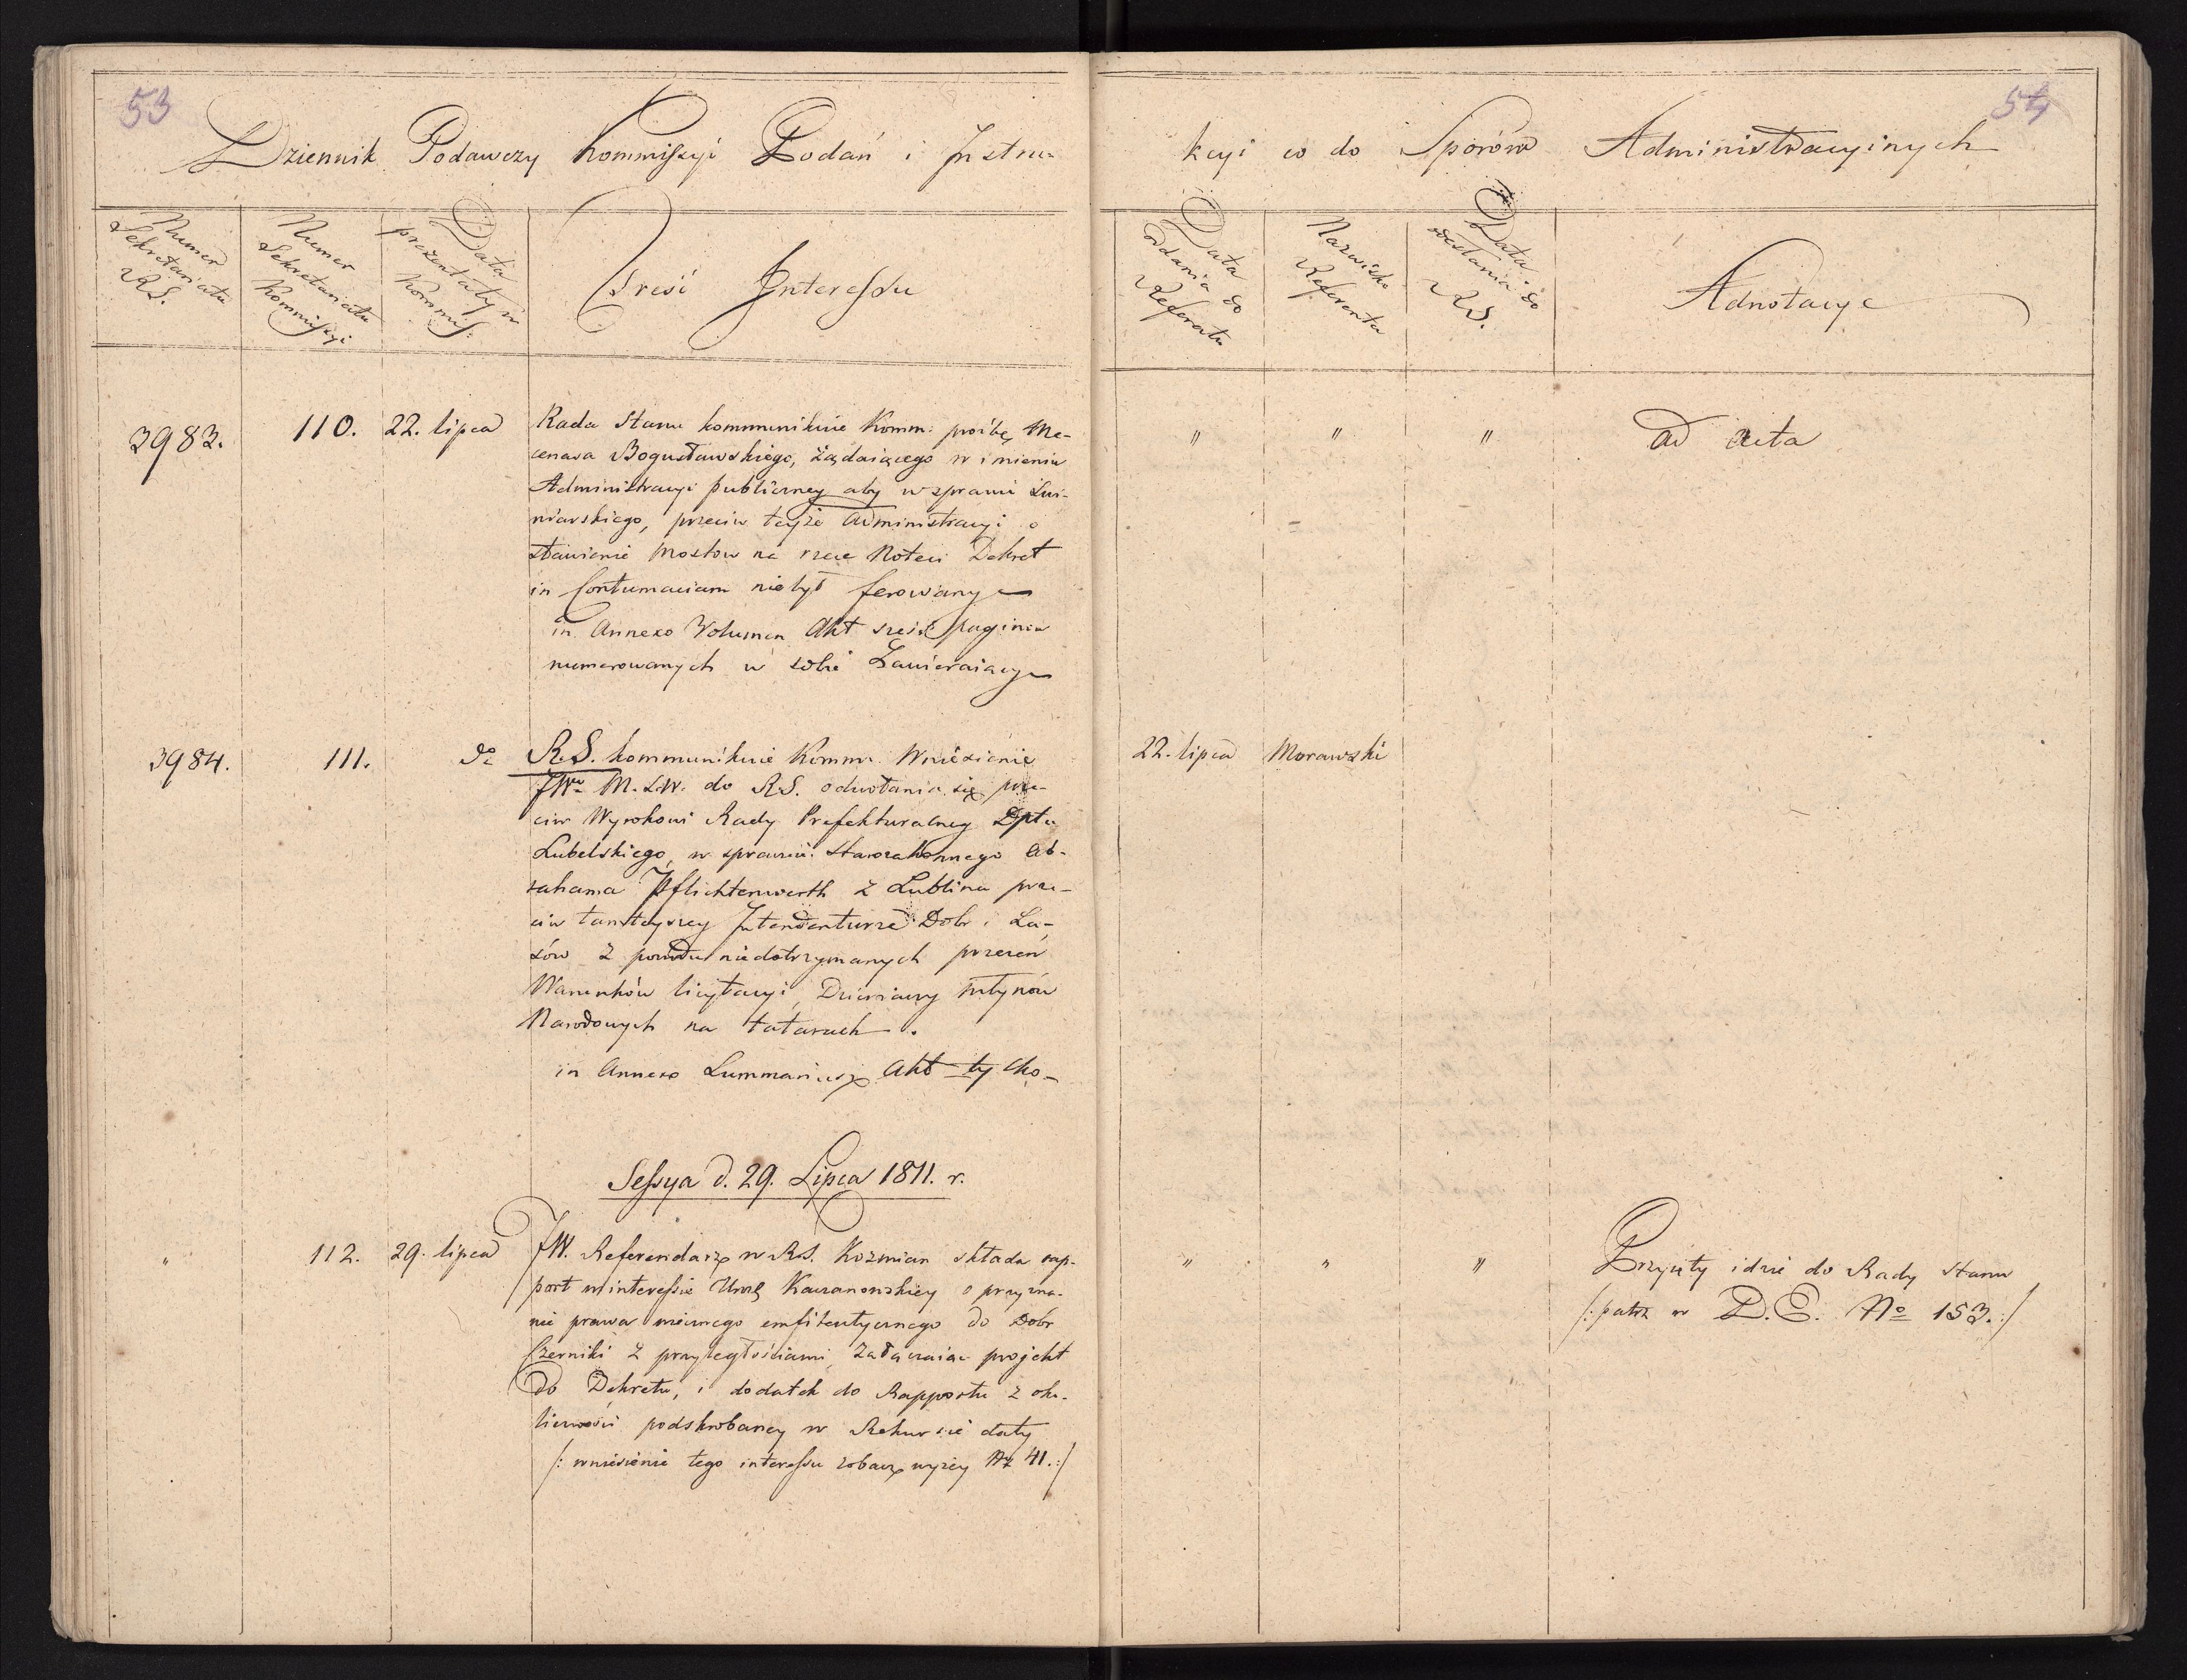 53
54
Dziennik Podawczy Kommissyi Podań i Instru-
kcyi co do Sporów Administracyinych
Numer Sekretariatu R.S.
Numer Sekretariatu Kommissyi
Data prezentaty w Kommis:
Treść Interessu
Data oddania do Referatu
Nazwisko Referenta
Data odesłania do R.S.
Adnotacye
3983. 110. 22. lipca
Rada Stanu kommunikuie Komm: prośbę Me-
cenasa Bogusławskiego, żądaiącego w imieniu
Administracyi publiczney aby w sprawie
przeciw teyże Administracyi o
stawienie Mostow na rzece Noteci Dekret
in Contumaciam niebył ferowany
in Annexo Volumen Akt sześć paginow
numerowanych w sobie Zawieraiący
" " " ad acta
3984. 111. do
R.S. kommunikuie Komm: Wniesienie
JWo M.S.W. do R.S. odwołania się prze-
ciw Wyrokowi Rady Prefekturalney Dptu
Lubelskiego, w sprawie Starozakonnego Ab-
rahama Pflichtenwerth z Lublina prze-
ciw tamteyszey Intendenturze Dobr i La-
sów z powodu niedotrzymanych przezeń
Warunków licytacyi, Dzierżawy młynów
Narodowych na tatarach.
in Annexo Summariusz Akt tycho-
22. lipca Morawski
Sessya d. 29. Lipca 1811. r.
" 112. 29. lipca
JW. Referendarz w R.S. Kozmian składa rap-
port w interessie Urol Kaczanowskiey o przyzna-
nie prawa wiecznego emfiteutycznego do Dobr
Czerniki z przyległościami, załączaiąc projekt
do Dekretu, i dodatek do Rapportu z oko-
liczności podskrobaney w Rekursie daty
/: wniesienie tego interessu zobacz wyżey No 41. :/
" " " Przyięty idzie do Rady Stanu
/: patrz w D.E. No 153. :/